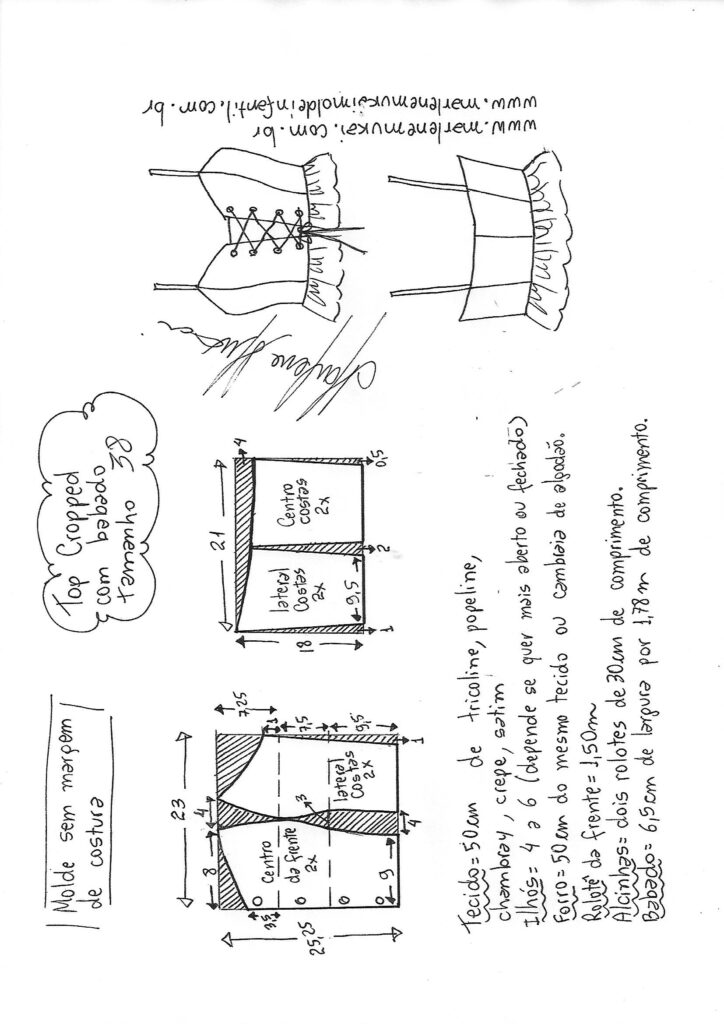 Molde sem margem
de costura
Top Cropped
com babado
tamanho 38
www.marlenemukai.com.br
www.marlenemukaimoldeinfantil.com.br
23
8
4
7,25
3,5
25,25
1
7,5
9,5
3
Centro
da frente
2x
lateral
Costas
2x
9
4
1
21
4
18
lateral
Costas
2x
Centro
costas
2x
9,5
1
2
0,5
Marlene Mukai
Tecido= 50cm de tricoline, popeline,
chambray, crepe, satim
Ilhós= 4 a 6 (depende se quer mais aberto ou fechado)
Forro= 50cm do mesmo tecido ou cambraia de algodão.
Rolotê da frente= 1,50m
Alcinhas= dois rolotes de 30cm de comprimento.
Babado= 6,5cm de largura por 1,78m de comprimento.